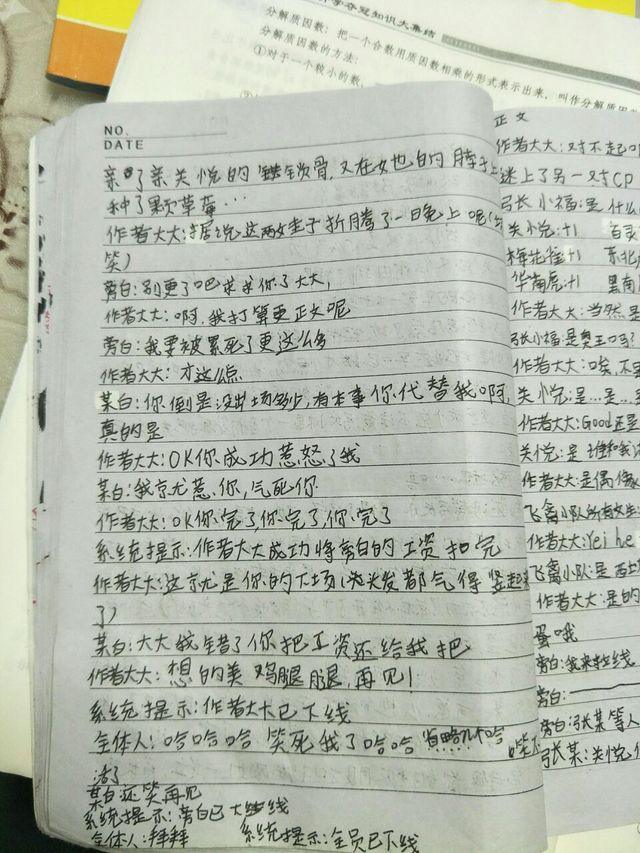 学夺冠知识大集结
分解质因数：把一个合数用质因数相乘的形式表示出来，叫作分解质因
分解质因数的方法：
①对于一个较小的数，
NO.
DATE
亲了亲关悦的锁骨，又在她的脖子上
种了颗草莓…
作者大大：据说这两女子折腾了一晚上呢（
笑）
旁白：别更了吧求求你了大大，
作者大大：啊，我打算更正文呢
旁白：我要被累死了更这么多
作者大大：才这么点
某白：你倒是没出场多少，有本事你代替我啊，
真的是
作者大大：OK你成功惹怒了我
某白：我就惹你，气死你
作者大大：OK你完了你完了，你完了
系统提示：作者大大成功将旁白的工资扣完
作者大大：这就是你的下场（头发都气得竖起来
了）
某白：大大我错了你把工资还给我把
作者大大：想的美鸡腿腿，再见！
系统提示：作者大大已下线
全体人：哈哈哈 笑死我了哈哈
某白还笑再见
系统提示：旁白已下线
全体人：拜拜 系统提示：全员已下线
正文
作者大大：对不起
迷上了另一对CP
弓长小福：是什么
关悦：+1 百灵
梅花雀：+1 东北
华南虎：+1 黑南
作者大大：当然是
弓长小福：是奥王吗？
作者大大：唉，不
关悦：是…是…
作者大大：Good还是
关悦：是谁和我
作者大大：是偶像
飞禽小队所有女生
作者大大：Yei he
飞禽小队：是西
作者大大：是的
蛋哦
旁白：我来拉线
旁白：
旁白：弓长某等人
弓长某：关悦，